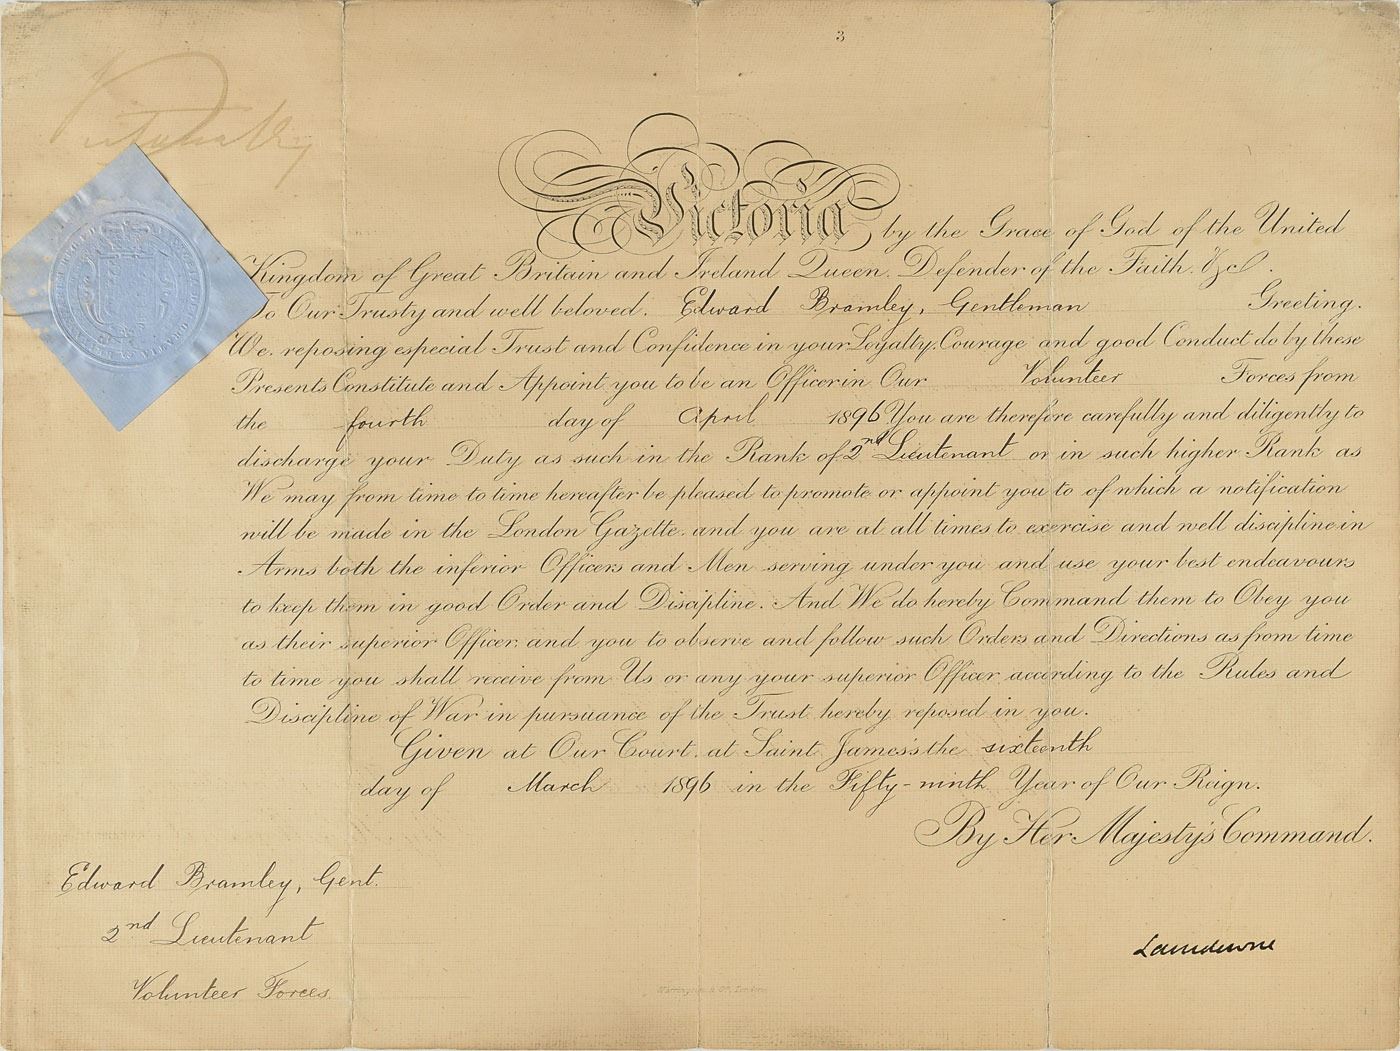 3
Victoria by the Grace of God of the United
Kingdom of Great Britain and Ireland Queen. Defender of the Faith. &c.
To Our Trusty and well beloved. Edward Bramley, Gentleman Greeting.
We. reposing especial Trust and Confidence in your Loyalty. Courage and good Conduct do by these
Presents Constitute and Appoint you to be an Officer in Our Volunteer Forces from
the fourth day of April 1896 You are therefore carefully and diligently to
discharge your Duty as such in the Rank of 2nd Lieutenant or in such higher Rank as
We may from time to time hereafter be pleased to promote or appoint you to of which a notification
will be made in the London Gazette. and you are at all times to exercise and well discipline in
Arms both the inferior Officers and Men serving under you and use your best endeavours
to keep them in good Order and Discipline. And We do hereby Command them to Obey you
as their superior Officer. and you to observe and follow such Orders and Directions as from time
to time you shall receive from Us or any your superior Officer. according to the Rules and
Discipline of War in pursuance of the Trust hereby reposed in you.
Given at Our Court. at Saint James's the sixteenth
day of March 1896 in the Fifty-ninth Year of Our Reign.
By Her Majesty's Command.
Edward Bramley, Gent.
2nd Lieutenant
Volunteer Forces.
Lansdowne